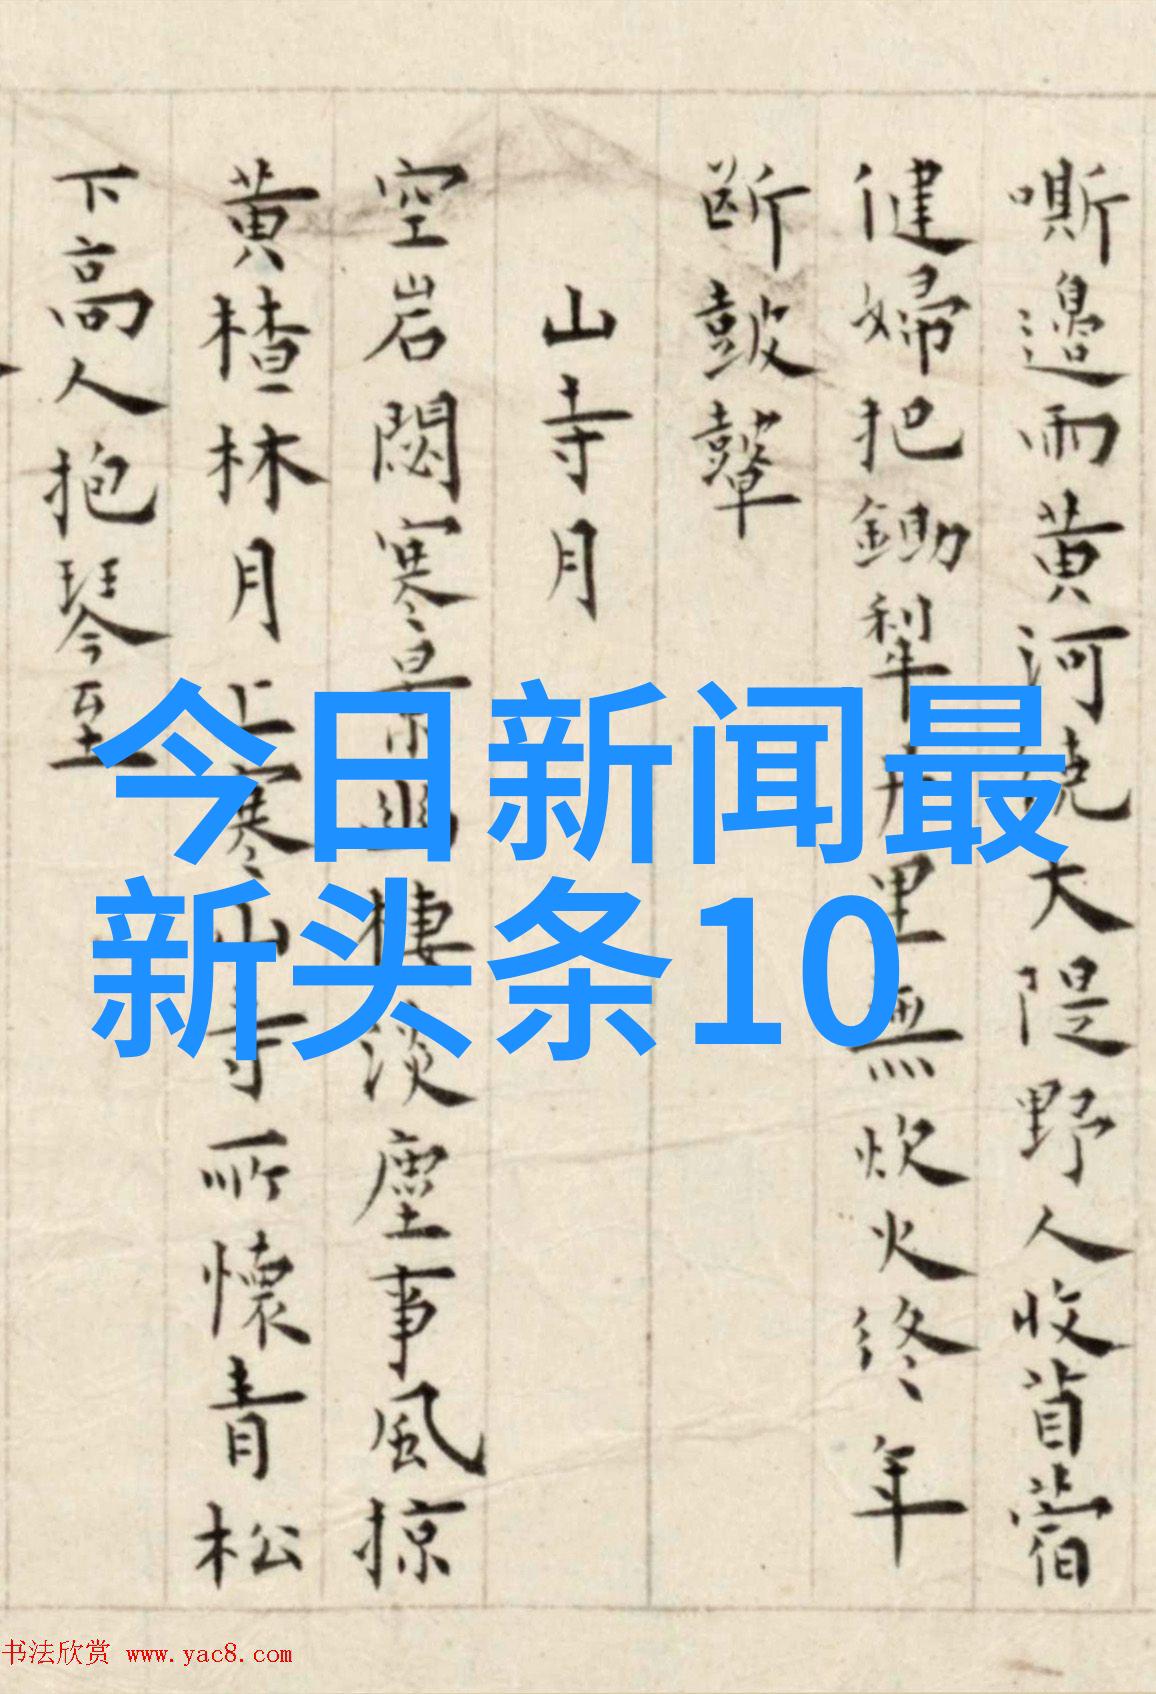 嘶邊雨黄河繞大隄野人收苜蓿
健婦把鋤犁里無炊火終年
断皷鼙
山寺月
空岩閟寒景幽棲淡塵事風掠
黄楂林月上寒山寺所懷青松
下高人抱琴至
今日新闻最
新头条10
书法欣赏 www.yac8.com